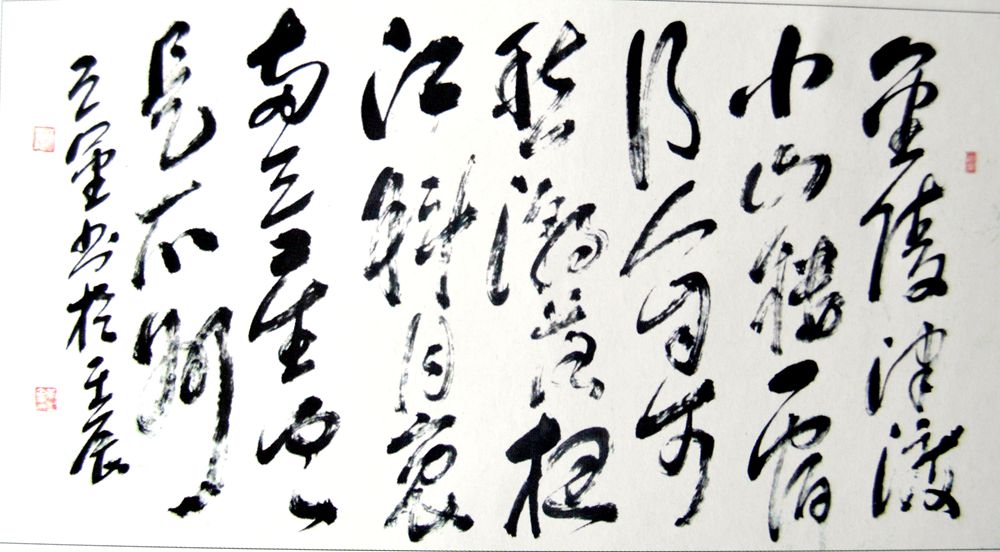 金陵津渡
小山楼一宿
行人自可
愁潮落夜
江斜月裏
两三星火
是瓜州
书於壬辰